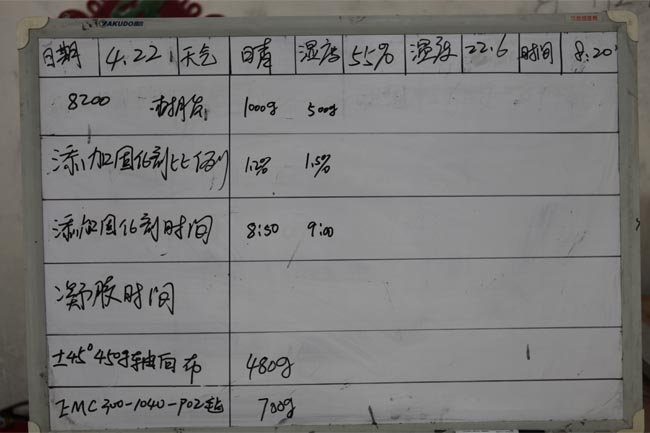 日期 4.22 天气 日青 湿度 55% 温度 22.6 时间 8:20
8200 树脂 1000g 500g
添加固化剂比例 1.2% 1.5%
添加固化剂时间 8:50 9:00
凝胶时间
±45° 450g 双轴向布 480g
EMC300-1040-P02毡 700g